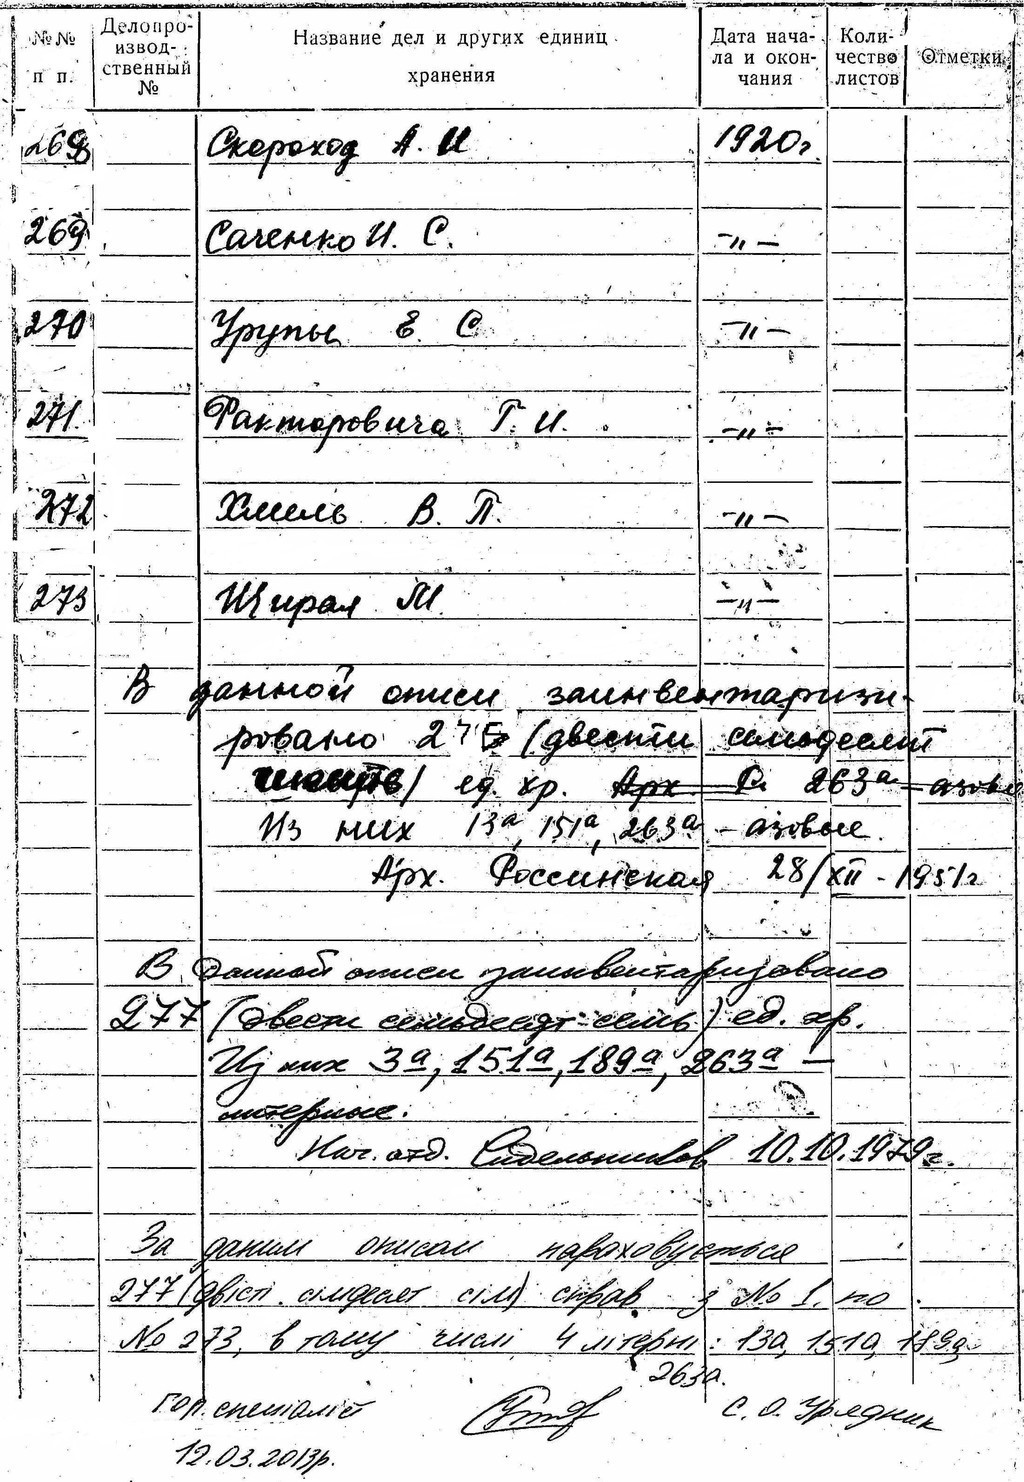 №№ п п.
Делопроизвод-ственный №
Название дел и других единиц хранения
Дата начала и окончания
Количество листов
Отметки
268 Скороход А. И 1920г.
269 Саченко И. С. -"-
270 Урупы Е С -"-
271. Факторовича Г. И. -"-
272 Хмель В. П. -"-
273 Щирая М. -"-
В данной описи заинвентаризи-
ровано 276 (двести семьдесят
шесть) ед. хр. Арх. 263а – азовы
Из них 13а, 151а, 263а – азовые.
Арх. Россинская 28/XII - 1951г
В данной описи заинвентаризовано
277 (двести семьдесят семь) ед. хр.
Из них 3а, 151а, 189а, 263а –
литерные.
Нач. отд. Сидельников 10.10.1979г.
За даним описом нараховується
277 (двісті сімдесят сім) справ з №1. по
№273, в тому числі 4 літерні: 13а, 151а, 189а
263а.
Гол. спеціаліст С. О. Урядник
12.03.2013р.